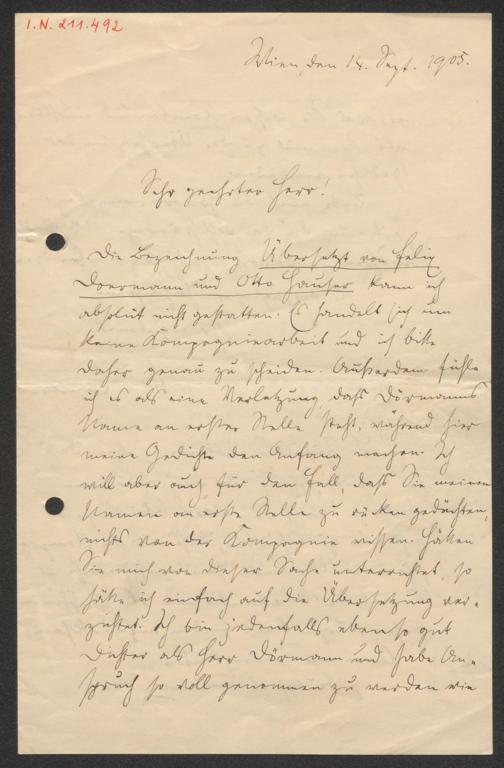 I.N. 211.492
Wien, den 14. Sept. 1905.
Sehr geehrter Herr!
Die Bezeichnung Übersetzt von Felix
Doermann und Otto Hauser kann ich
absolut nicht gestatten. Es handelt sich um
keine Kompagniearbeit und ich bitte
daher genau zu scheiden. Außerdem fühle
ich es als eine Verletzung, dass Dörmanns
Name an erster Stelle steht, während hier
meine Gedichte den Anfang machen. Ich
will aber auch für den Fall, dass Sie meinen
Namen an erste Stelle zu rücken gedächten,
nichts von der Kompagnie wissen. Hätten
Sie mich von dieser Sache unterrichtet, so
hätte ich einfach auf die Übersetzung ver-
zichtet. Ich bin jedenfalls ebenso gut
Dichter als Herr Dörmann und habe An-
spruch so voll genommen zu werden wie